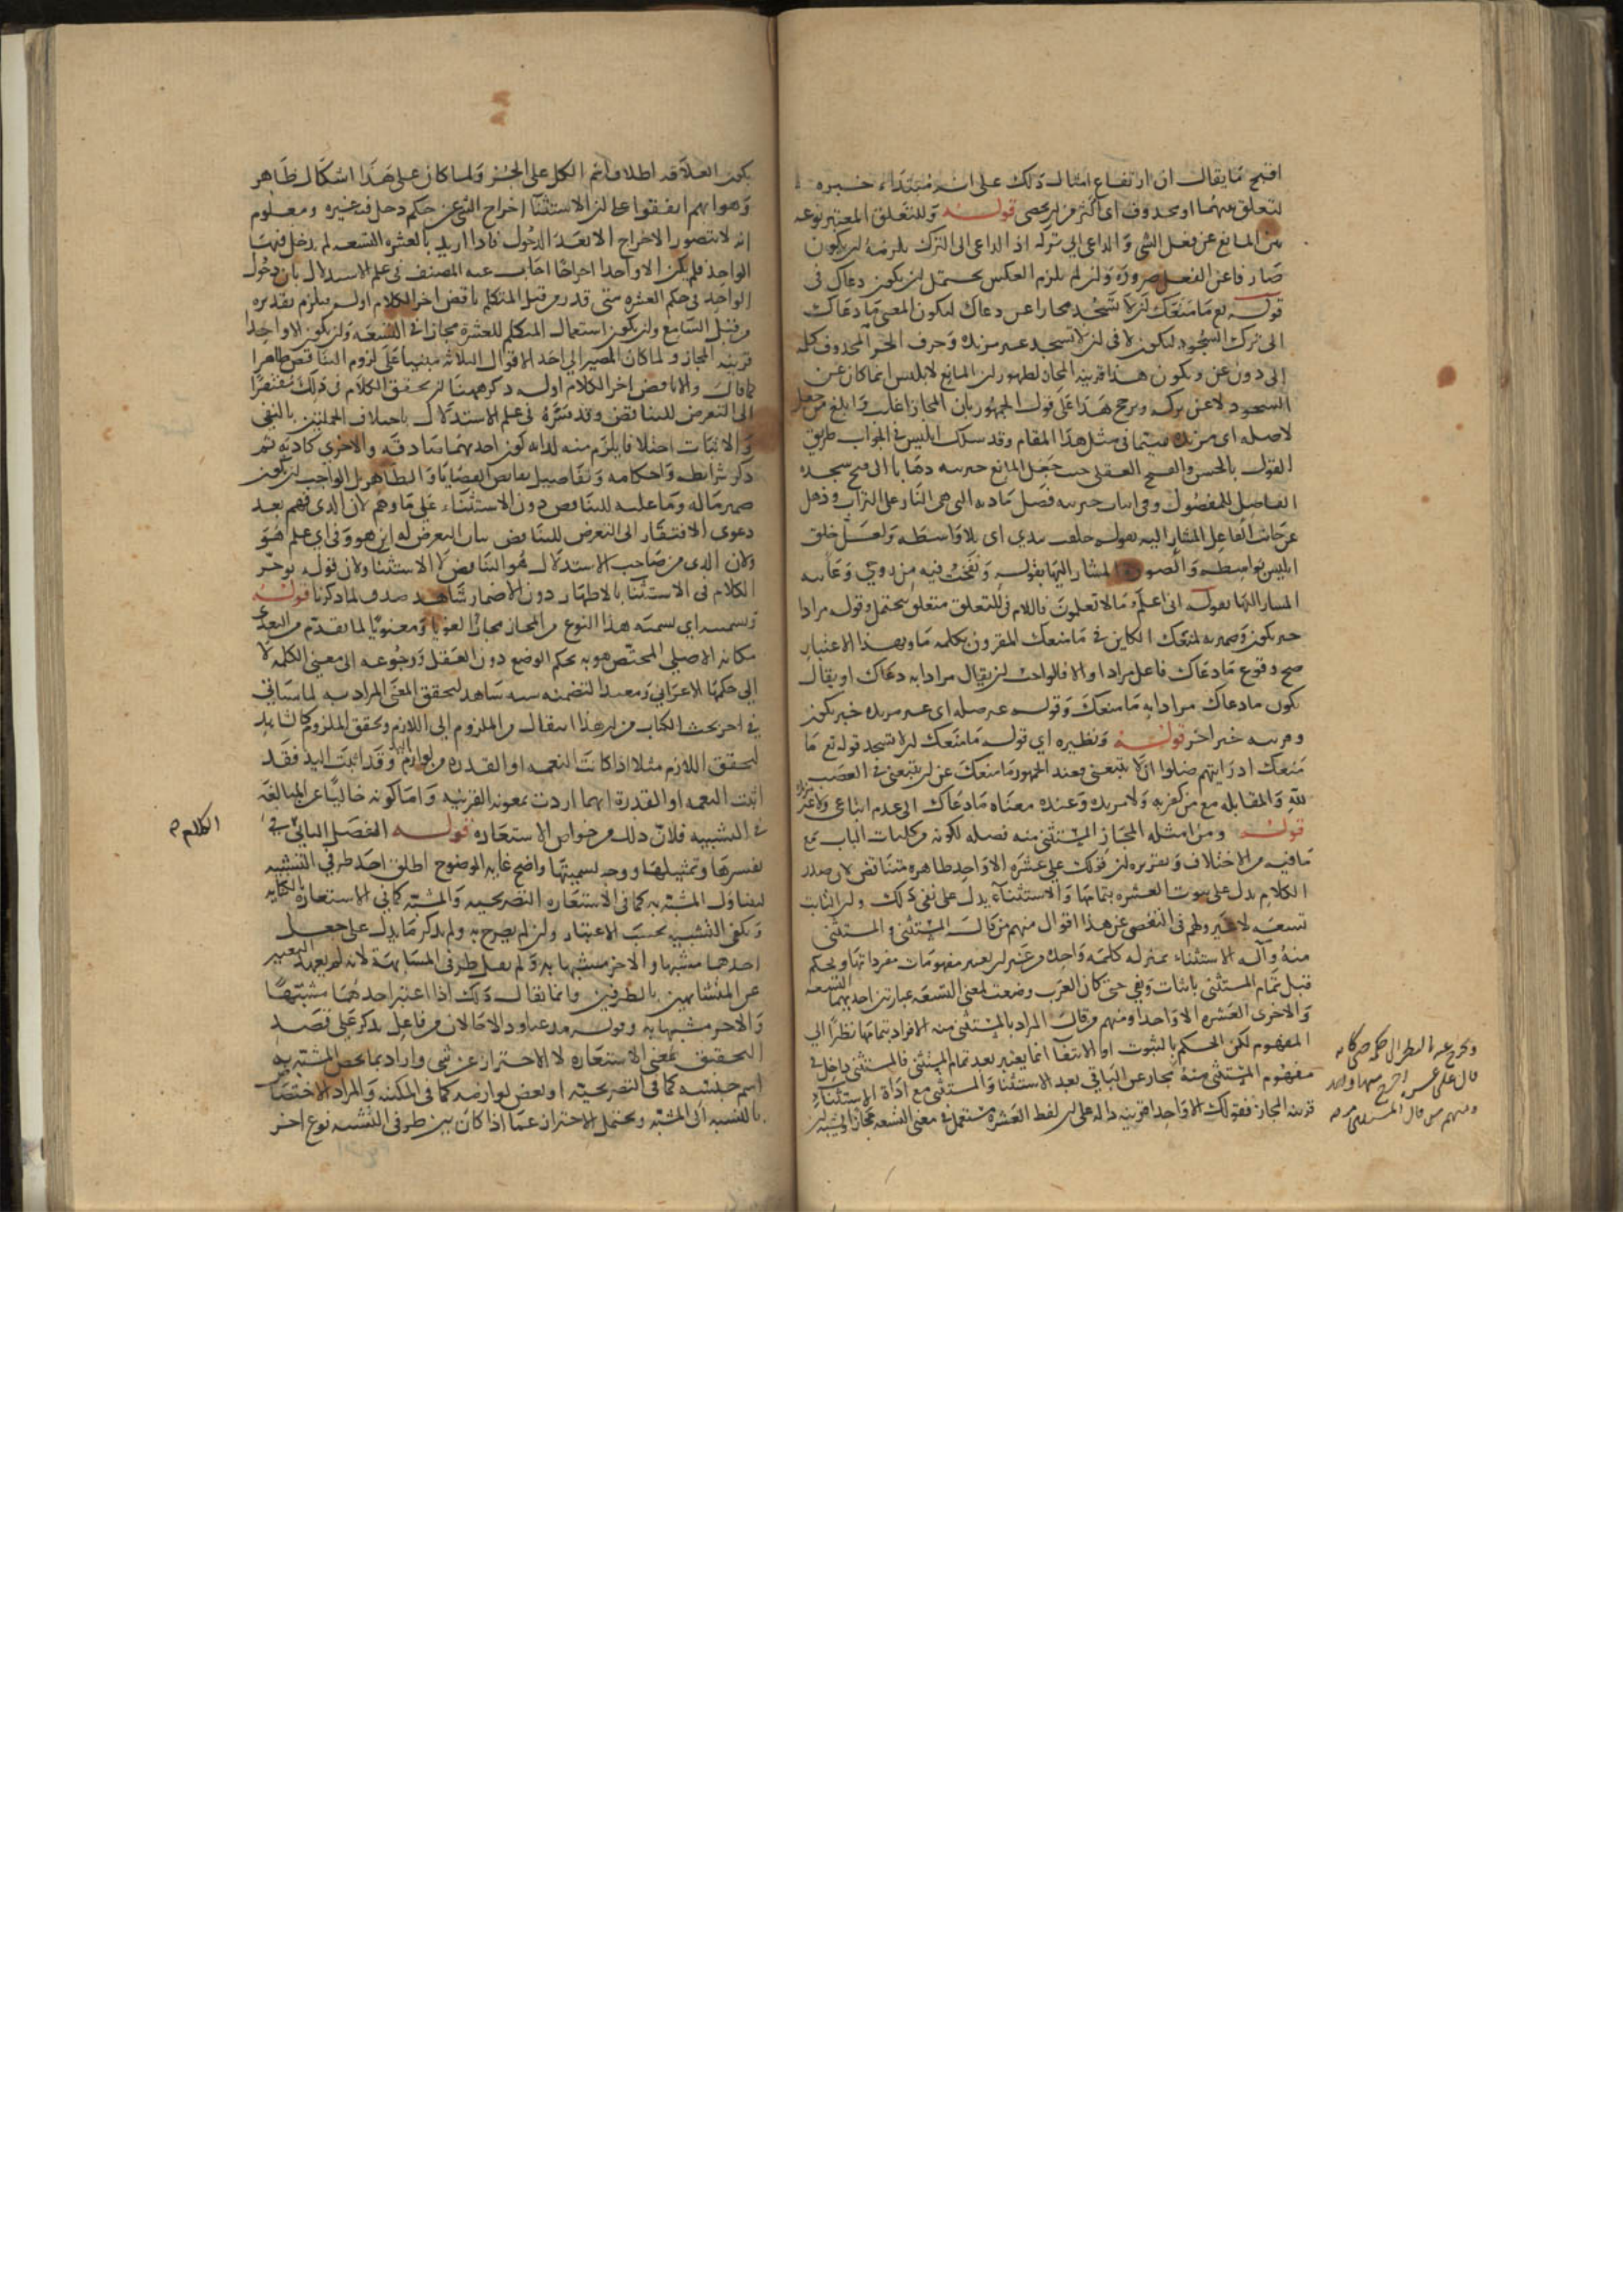 اقبح ما يقال ان ارتفاع امثال ذلك على انه مبتدا خبره
لتعلق بهما او محذوف اى اكثر من ان يحصى قوله وللتعلق المعتبر نوعه
بين المانع عن فعل الشى والداعى الى تركه اذ الداعى الى الترك يلزمه ان يكون
صارفا عن الفعل ضرورة وان لم يلزم العكس يحتمل ان يكون دعاك فى
قوله تع ما منعك ان لا تسجد مجازا عن دعاك ليكون المعنى ما دعاك
الى ترك السجود ليكون لا فى ان لا تسجد غير مزيدة وحرف الجر المحذوف كلمة
الى دون عن ويكون هذا قرينة المجاز لظهور ان المانع لابليس انما كان عن
السجود لا عن تركه ويرجح هذا على قول الجمهور بان المجاز اغلب وابلغ من جعل
لا صلة اى مزيدة سيما فى مثل هذا المقام وقد سلك ابليس فى الجواب طريق
القول بالحسن والقبح العقلى حيث جعل المانع خيريته ذهابا الى قبح سجدة
الفاضل للمفضول وفى اثبات خيريته فضل مادته التى هى النار على التراب وذهل
عن جانب الفاعل المشار اليه بقوله خلقت بيدى اى بلا واسطة ولعل خلق
ابليس بواسطة والصورة المشار اليها بقوله ونفخت فيه من روحى وغايته
المشار اليها بقوله انى اعلم ما لا تعلمون فاللام فى للتعلق متعلق بيحتمل وقوله مرادا
خبر يكون وضميره لمنعك الكاين فى ما منعك المقرون بكلمة ما وبهذا الاعتبار
صح وقوع ما دعاك فاعل مرادا والا فالواجب ان يقال مرادا به دعاك او يقال
يكون ما دعاك مرادا به ما منعك وقوله غير صلة اى غير مزيدة خبر يكون
وقرينة خبر اخر قوله ونظيره اى قوله ما منعك ان لا تسجد قوله تع ما
منعك اذ رايتهم ضلوا ان لا تتبعنى فعند الجمهور ما منعك عن ان تتبعنى فى الغضب
لله والمقابلة مع من كفر به ولا مزيدة وعنده معناه ما دعاك الى عدم اتباعى ولا غير
قوله ومن امثلة المجاز المستثنى منه فصله لكونه من كليات الباب مع
ما فيه من الاختلاف وتقريره ان قولك على عشرة الا واحد ظاهره متناقض لان صدر
الكلام يدل على ثبوت العشرة بتمامها والاستثناء يدل على نفى ذلك وان الثابت
تسعة لا غير ولهم فى التفصى عن هذا اقوال منهم من قال المستثنى و المستثنى
منه وآلة الاستثناء بمنزلة كلمة واحدة من غير ان يعتبر مفهومات مفرداتها ويحكم
قبل تمام المستثنى باثبات ونفى حتى كان العرب وضعت لمعنى التسعة عبارتين احديهما التسعة
والاخرى العشرة الا واحدا ومنهم من قال المراد بالمستثنى منه الافراد بتمامها نظرا الى
المفهوم لكن الحكم بالثبوت او الانتفا انما يعتبر بعد تمام المستثنى فالمستثنى داخل فى
مفهوم المستثنى منه مجاز عن الباقى بعد الاستثنا والمستثنى مع اداة الاستثناء
قرينة المجاز فقولك الا واحدا قرينة دالة على ان لفظ العشرة مستعمل فى معنى التسعة مجازا
قال على
ومنهم من قال المستثنى منه
يكون العلاقة اطلاق اسم الكل على الجزء ولما كان على هذا اشكال ظاهر
وهو انهم اتفقوا على ان الاستثنا اخراج الشى عن حكم دخل فيه غيره ومعلوم
انه لا يتصور الاخراج الا بعد الدخول فاذا اريد بالعشرة التسعة لم يدخل فيها
الواحد فلم يكن الا واحدا اخراجا اجاب عنه المصنف فى علم الاستدلال بان دخول
الواحد فى حكم العشرة متى قدر من قبل المتكلم ناقض اخر الكلام اوله فيلزم تقديره
من قبل السامع وان يكون استعمال المتكلم للعشرة مجازا فى التسعة وان يكون الا واحدا
قرينة المجاز ولما كان المصير الى احد الاقوال الثلاثة مبنيا على لزوم التناقض ظاهرا
كما قال والا ناقض اخر الكلام اوله ذكر ههنا ان تحقق الكلام فى ذلك مفتقر
الى التعرض للتناقض وقد فسره فى علم الاستدلال باختلاف الجملتين بالنفى
والاثبات اختلافا يلزم منه لذاته كون احديهما صادقة والاخرى كاذبة ثم
ذكر شرائطه واحكامه وتفاصيل نقائض القضايا والظاهر ان الواجب ان يكون
ضمير ماله وما عليه للتناقض دون الاستثناء على ما وهم لان الذى يفهم بعد
دعوى الافتقار الى التعرض للتناقض بيان التعرض له اين هو وفى اى علم هو
ولان الذى من صاحب الاستدلال هو التناقض لا الاستثنا ولان قوله نوخر
الكلام فى الاستثنا بالاظهار دون الاضمار شاهد صدق لما ذكرنا قوله
وتسميته اى تسمية هذا النوع من المجاز مجازا لغويا ومعنويا لما تقدم من التعدى
مكانه الاصلى المختص هو به بحكم الوضع دون العقل ورجوعه الى معنى الكلمة لا
الى حكمها الاعرابى ومفيدا لتضمنه شاهد لتحقق المعنى المراد به لما سياتى
فى اخر بحث الكتاب من ان هذا انتقال من الملزوم الى اللازم وتحقق الملزوم كالشاهد
لتحقق اللازم مثلا اذا كانت النعمة او القدرة من لوازم اليد وقد اثبت اليد فقد
اثبت النعمة او القدرة ايهما اردت بمعونة القرينة واما كونه خاليا عن المبالغة
فى التشبيه فلان ذلك من خواص الاستعارة قوله الفصل الثانى فى
تفسيرها وتمثيلها ووجه تسميتها واضح غاية الوضوح اطلق احد طرفى التشبيه
ليتناول المشبه به كما فى الاستعارة التصريحية والمشبه كما فى الاستعارة بالكناية
ويكفى التشبيه بحسب الاعتبار وان لم يصرح به ولم يذكر ما يدل على جعل
احدهما مشبها والاخر مشبها به ولم يقل طرفى المشابهة لانه لم يعهد التعبير
عن المتشابهين بالطرفين وانما يقال ذلك اذا اعتبر احدهما مشبها
والاخر مشبها به وقوله مدعيا ودالا حالان من فاعل يذكر على قصد
التحقيق بمعنى الاستعارة لا الاحتراز عن شى واراد بما يخص المشبه به
اسم جنسه كما فى التصريحية او بعض لوازمه كما فى المكنية والمراد الاختصاص
بالنسبة الى المشبه ويحتمل الاحتراز عما اذا كان بين طرفى التشبيه نوع اخر
الكلام